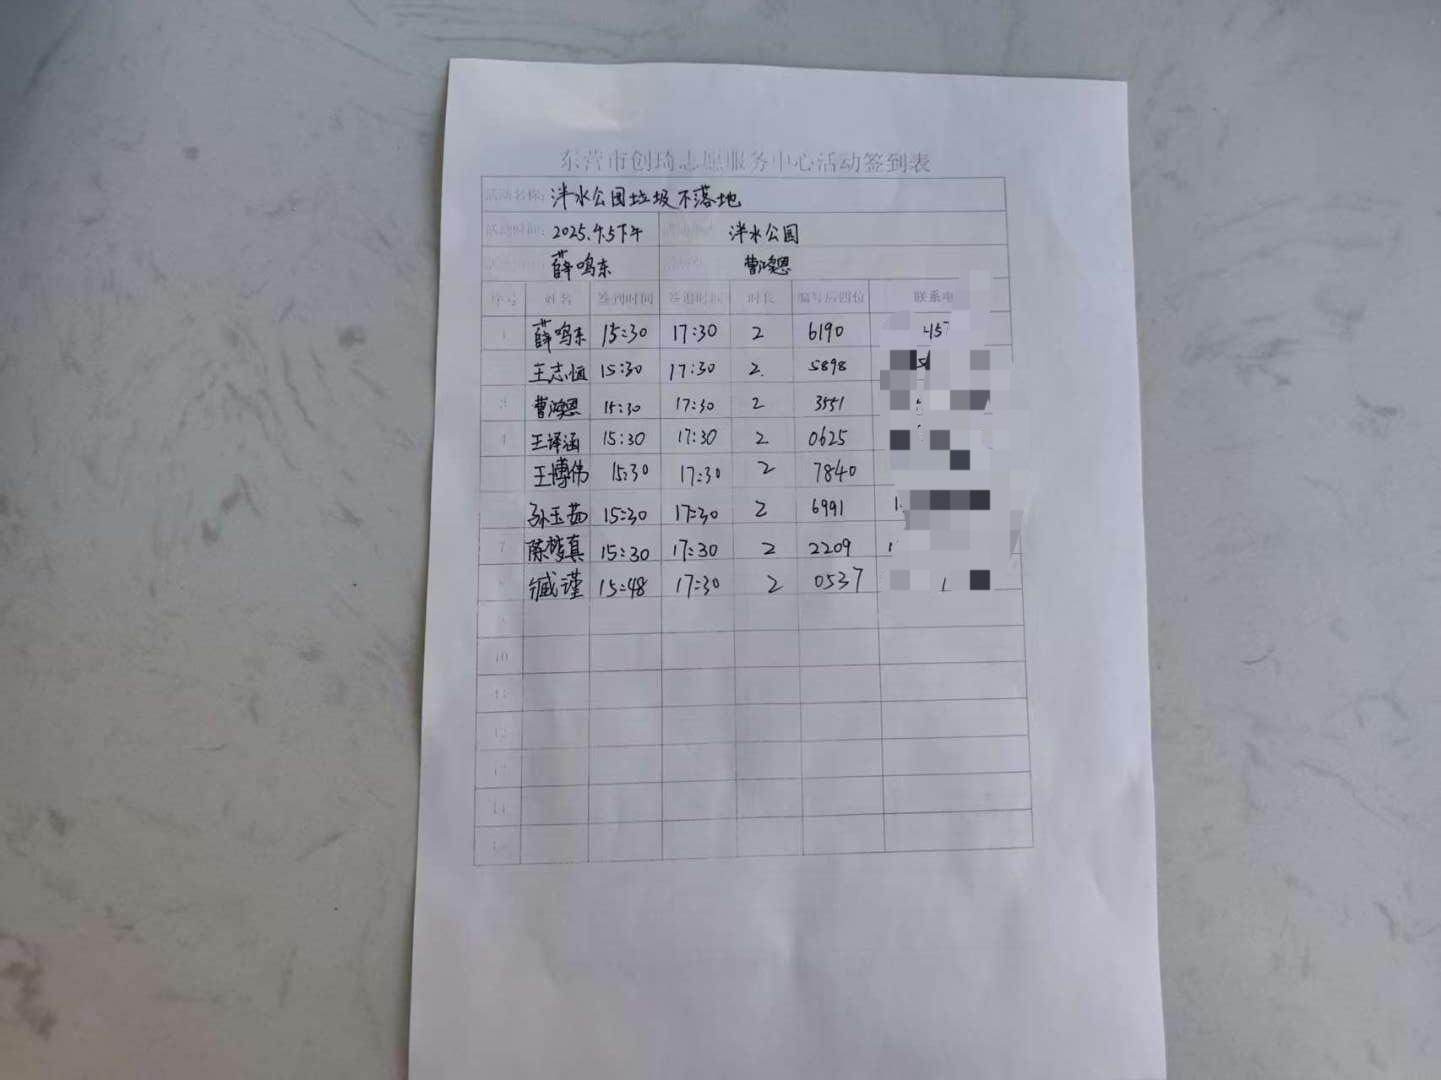 东营市创琦志愿服务中心活动签到表
活动名称: 泮水公园垃圾不落地
活动时间: 2025.4.5下午 泮水公园
薛鸣东 曹鸿恩
序号 姓名 签到时间 签退时间 时长 编号后四位 联系电
1 薛鸣东 15:30 17:30 2 6190 457
王志恒 15:30 17:30 2. 5898
3 曹鸿恩 15:30 17:30 2 3551
4 王译涵 15:30 17:30 2 0625
王博伟 15:30 17:30 2 7840
孙玉茹 15:30 17:30 2 6991 1
7 陈梦真 15:30 17:30 2 2209 1
臧谨 15:48 17:30 2 0537
9
10
11
12
13
14
15